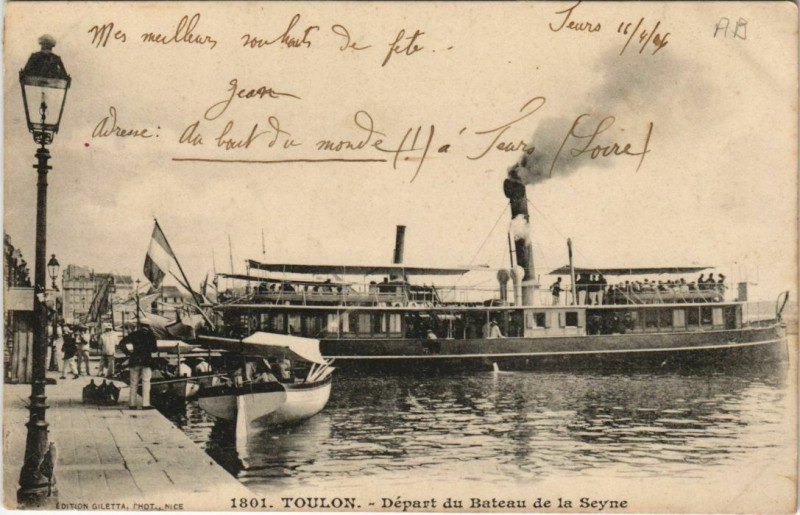 Feurs 11/4/04
A.B
Mes meilleurs souhaits de fête..
Jean
Adresse: Au bout du monde (!!) à Feurs (Loire)
1801. TOULON. - Départ du Bateau de la Seyne
EDITION GILETTA, PHOT., NICE